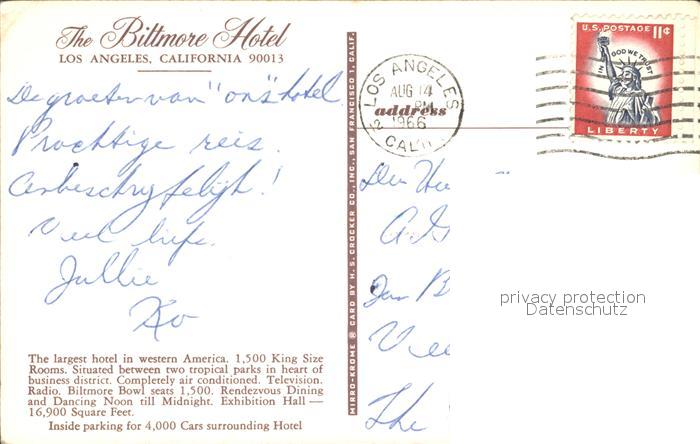 The Biltmore Hotel
LOS ANGELES, CALIFORNIA 90013
De groeten van "ons" hotel.
Prachtige reis.
Onbeschryfelijk!
Veel liefs.
Jullie
Ko
The largest hotel in western America. 1,500 King Size
Rooms. Situated between two tropical parks in heart of
business district. Completely air conditioned. Television.
Radio. Biltmore Bowl seats 1,500. Rendezvous Dining
and Dancing Noon till Midnight. Exhibition Hall —
16,900 Square Feet.
Inside parking for 4,000 Cars surrounding Hotel
MIRRO-KROME ® CARD BY H. S. CROCKER CO., INC., SAN FRANCISCO 1, CALIF.
LOS ANGELES
AUG 14
PM
1966
CALIF
address
U.S. POSTAGE 11¢
IN GOD WE TRUST
LIBERTY
Den
The
privacy protection
Datenschutz